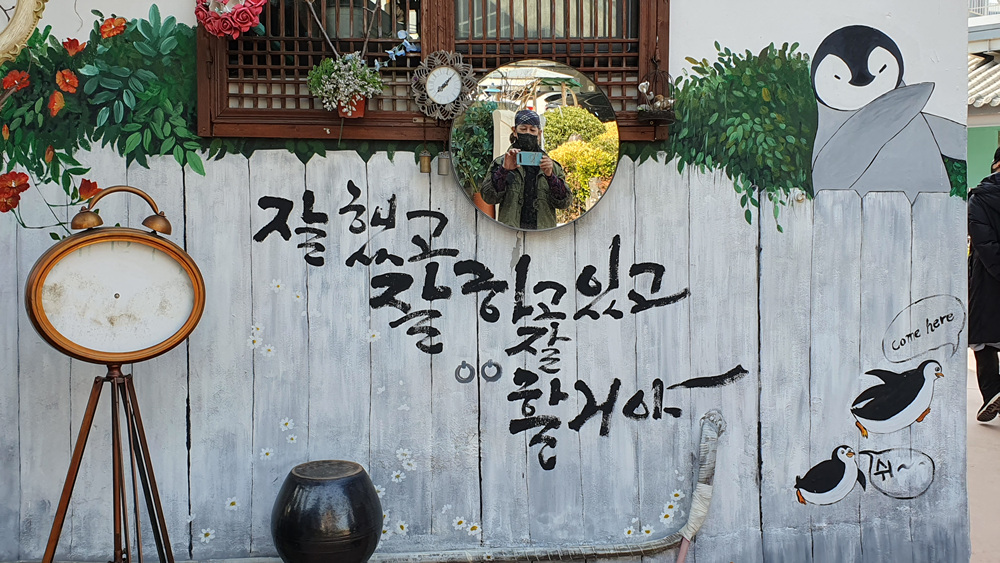 잘했고
잘하고있고
잘
할거야
come here
쉬~~